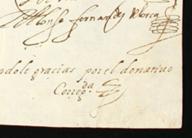 Alonso fernandez
ndole gracias por el donativo
Corregda